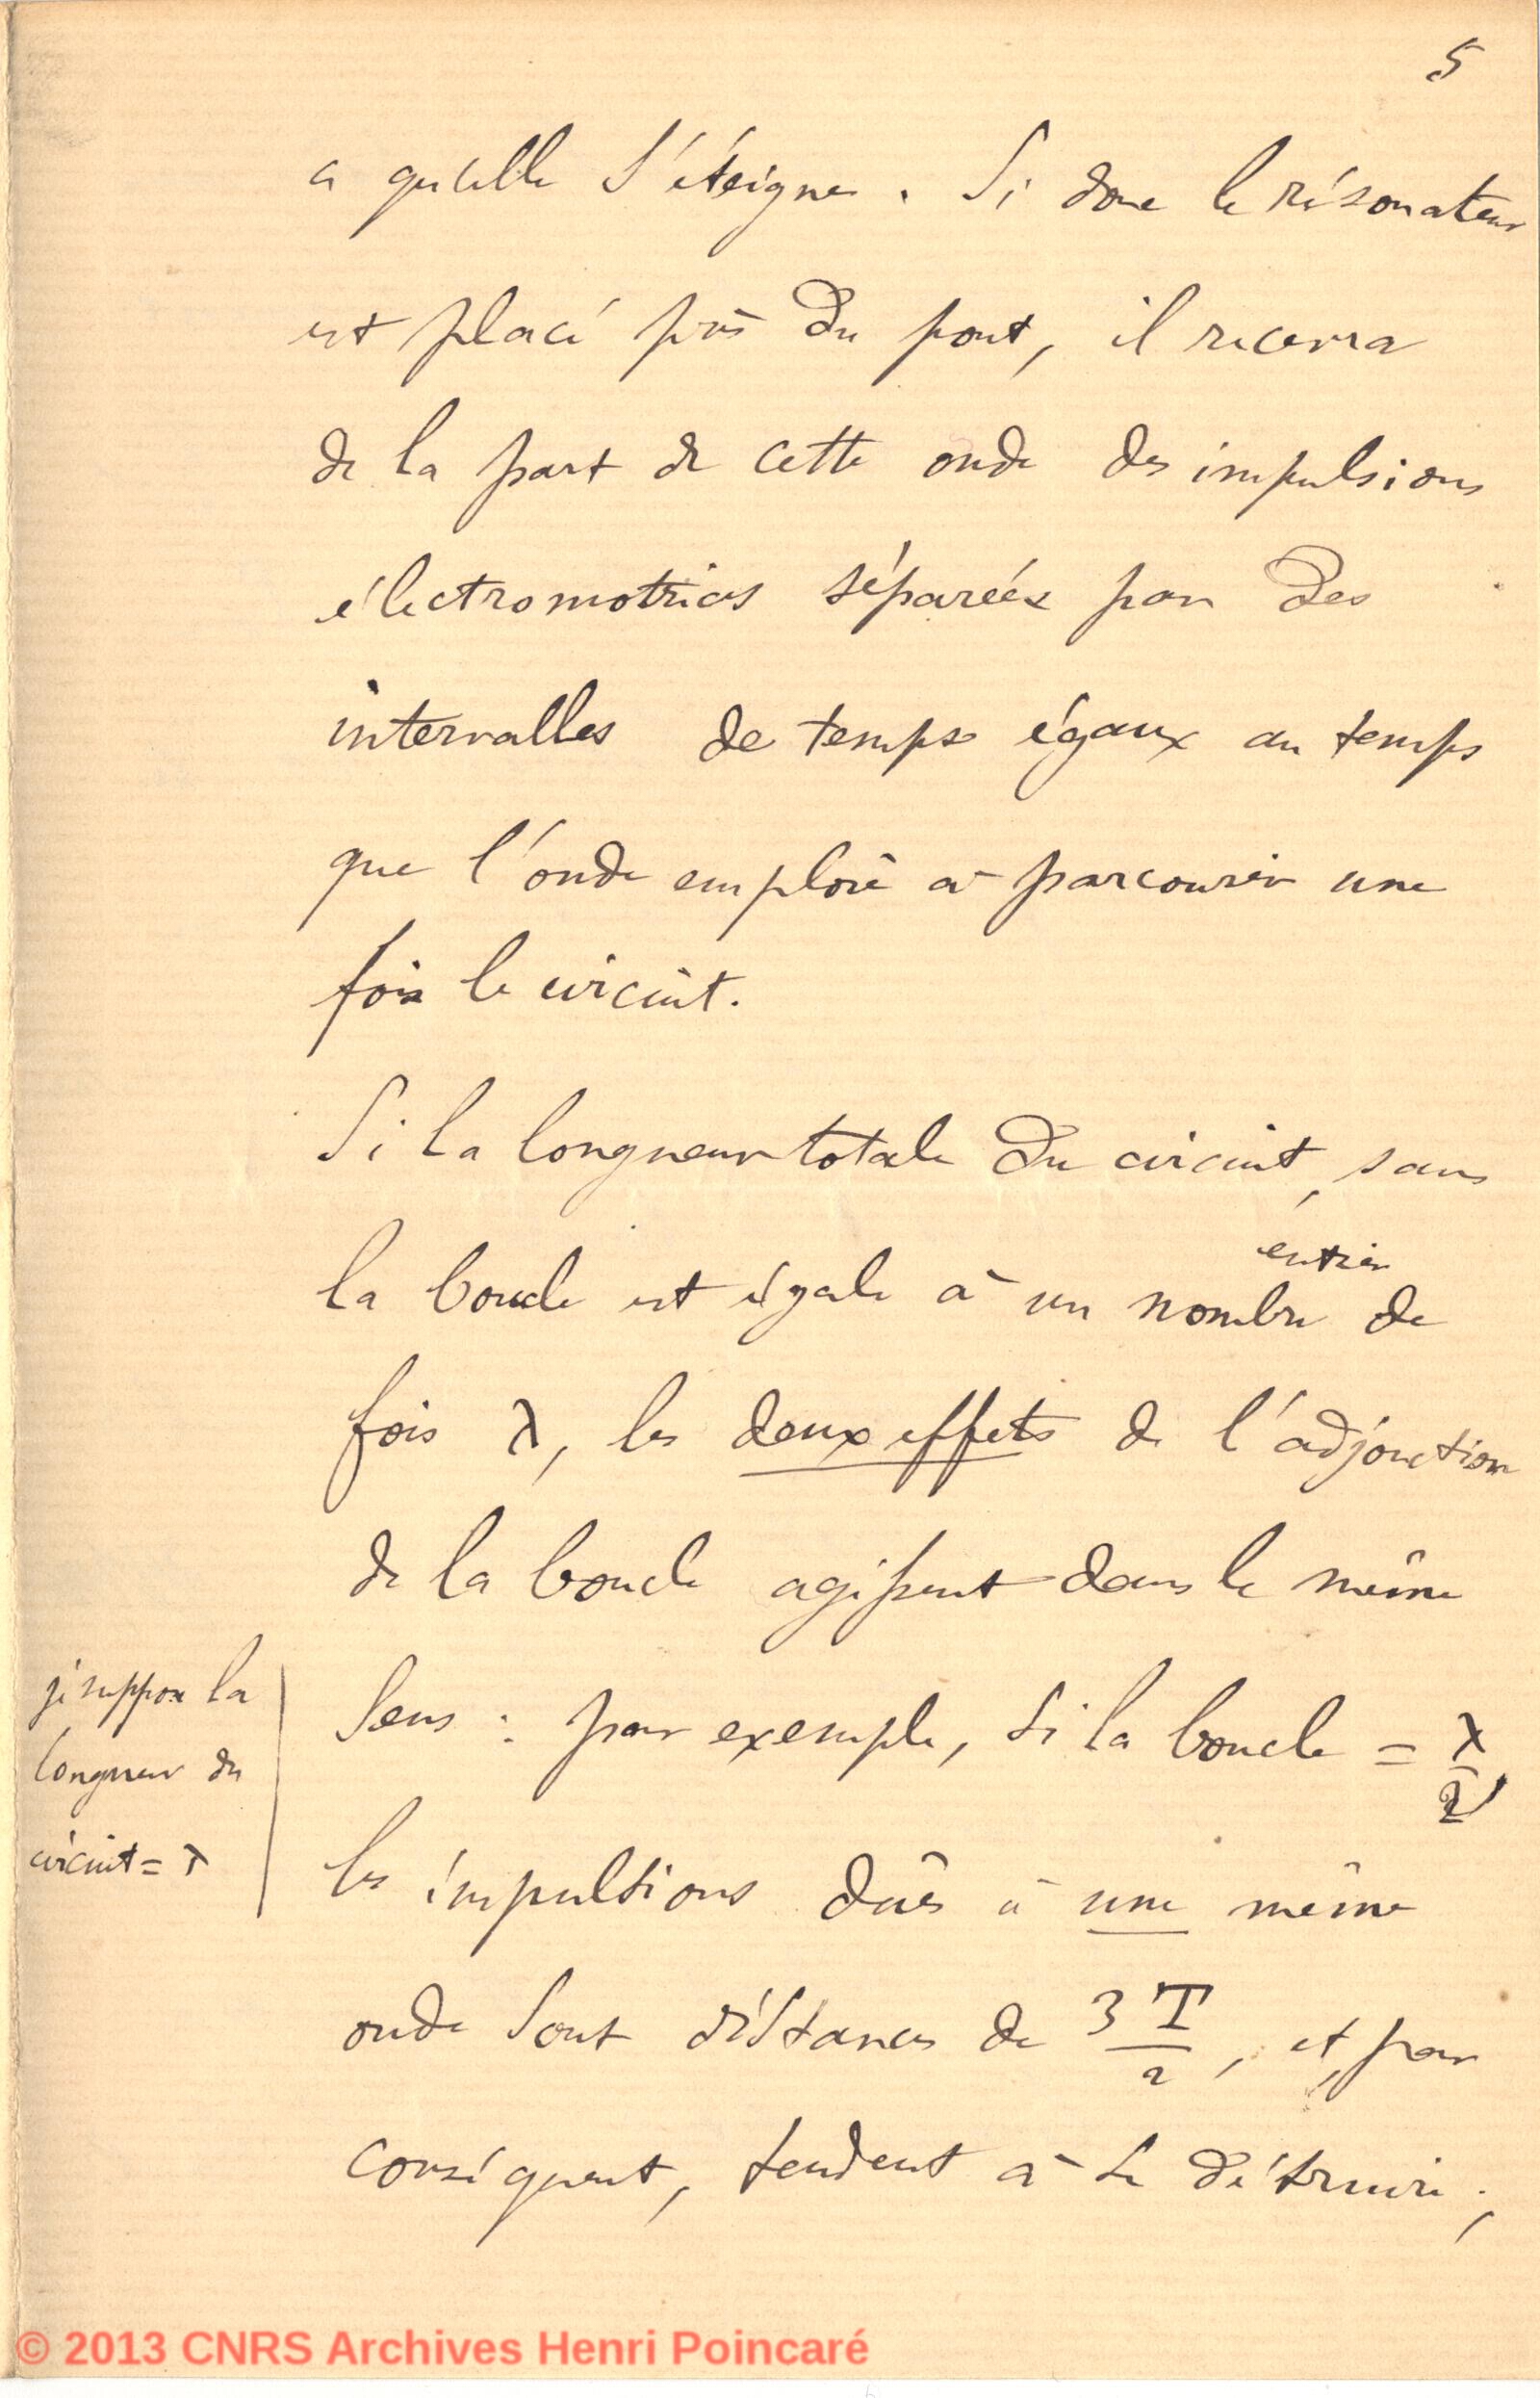 5
a qu'elle s'éteigne. Si donc le résonateur
est placé près du pont, il recevra
de la part de cette onde des impulsions
électromotrices séparées par des
intervalles de temps égaux au temps
que l'onde emploie à parcourir une
fois le circuit.
Si la longueur totale du circuit, sans
entier
la boucle est égale à un nombre de
fois λ, les deux effets de l'adjonction
de la boucle agissent dans le même
sens : par exemple, si la boucle = λ/2,
je suppose la
longueur du
circuit = λ
les impulsions dues à une même
onde sont distances de 3T/2, et par
conséquent, tendent à se détruire ;
© 2013 CNRS Archives Henri Poincaré